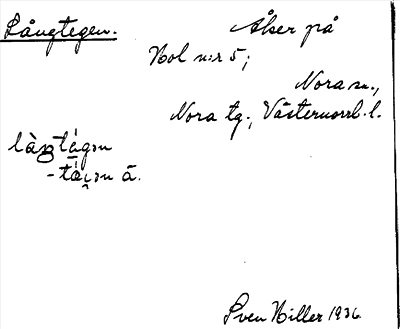 Långtegen. Åker på
Hol n:r 5;
Nora sn.,
Nora tg., Västernorrl. l.
-tä̀i̯ən ā.
Sven Hiller 1936